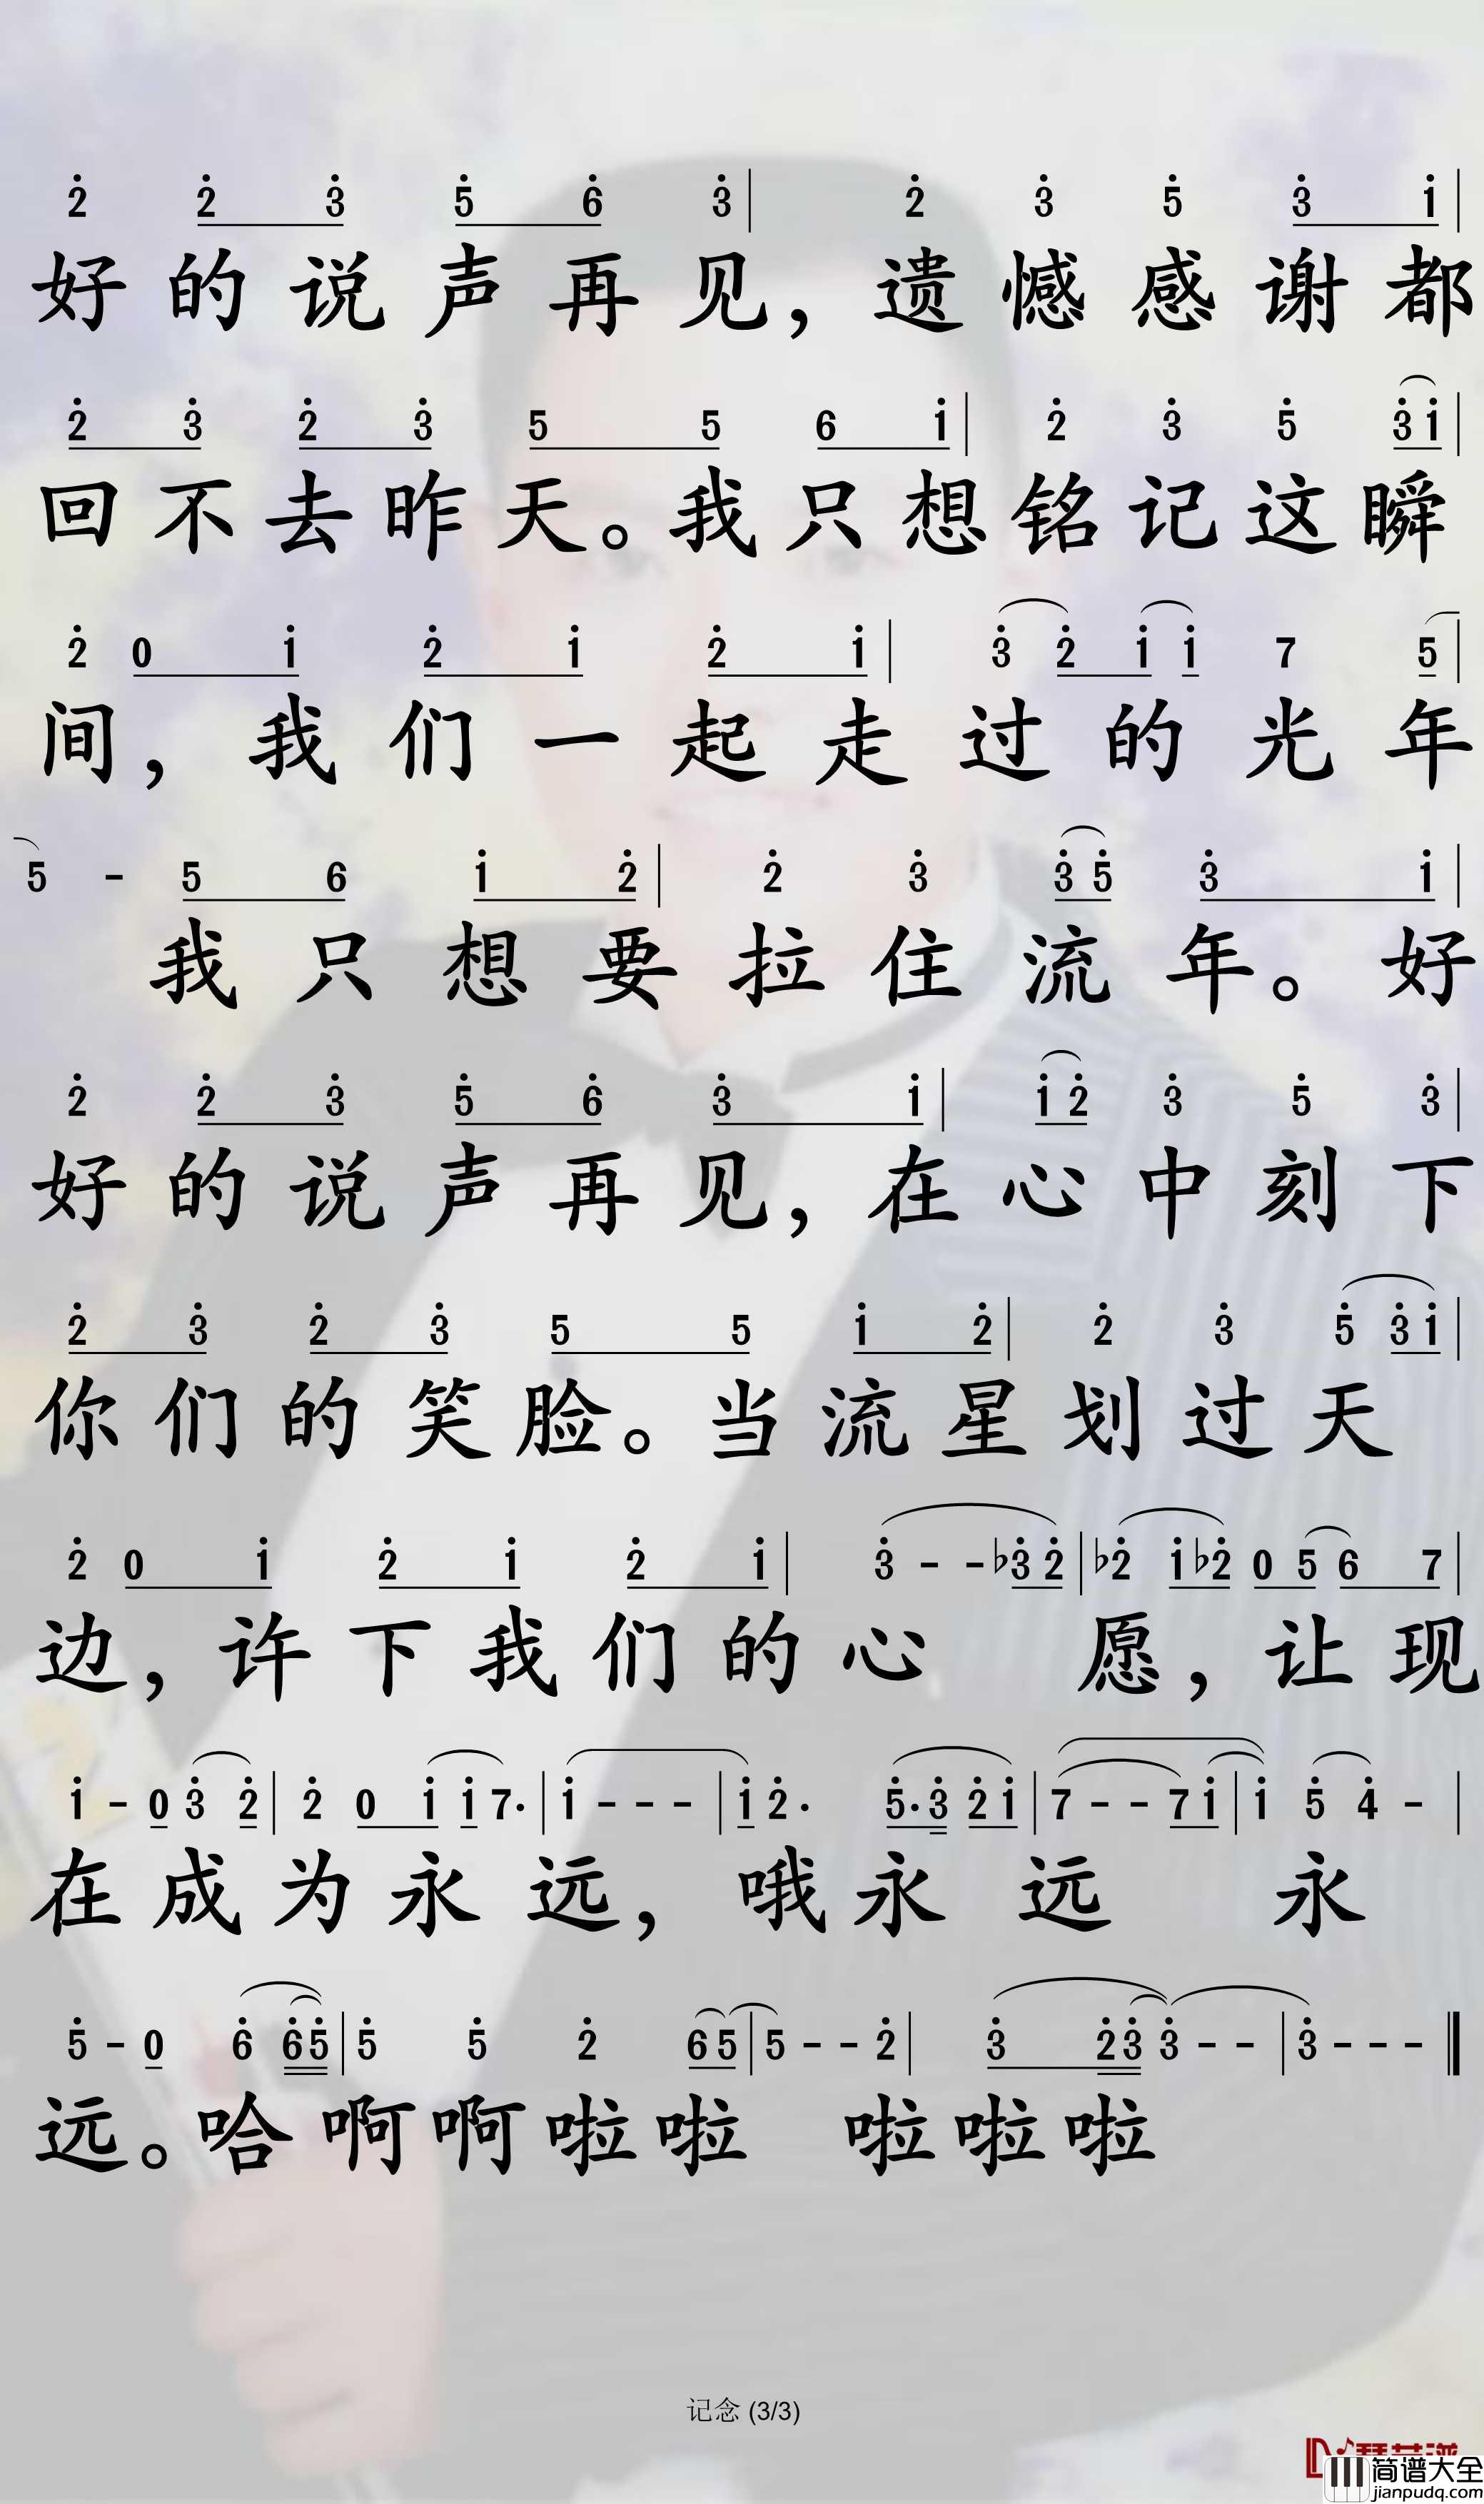 2̇ 2̇ 3̇ 5̇ 6̇ 3̇ | 2̇ 3̇ 5̇ 3̇ 1̇ |
好的说声再见，遗憾感谢都
2̇ 3̇ 2̇ 3̇ 5 5 6 1̇ | 2̇ 3̇ 5̇ 3̇ 1̇ |
回不去昨天。我只想铭记这瞬
2̇ 0 1̇ 2̇ 1̇ 2̇ 1̇ | 3̇ 2̇ 1̇ 1̇ 7 5 |
间，我们一起走过的光年
5 - 5 6 1̇ 2̇ | 2̇ 3̇ 3̇ 5̇ 3̇ 1̇ |
我只想要拉住流年。好
2̇ 2̇ 3̇ 5̇ 6̇ 3̇ 1̇ | 1̇ 2̇ 3̇ 5̇ 3̇ |
好的说声再见，在心中刻下
2̇ 3̇ 2̇ 3̇ 5 5 1̇ 2̇ | 2̇ 3̇ 5̇ 3̇ 1̇ |
你们的笑脸。当流星划过天
2̇ 0 1̇ 2̇ 1̇ 2̇ 1̇ | 3̇ - - ♭3̇ 2̇ | ♭2̇ 1̇ ♭2̇ 0 5 6 7 |
边，许下我们的心 愿，让现
1̇ - 0 3̇ 2̇ | 2̇ 0 1̇ 1̇ 7. | 1̇ - - - | 1̇ 2̇. 5̇. 3̇ 2̇ 1̇ | 7 - - 7 1̇ | 1̇ 5̇ 4̇ - |
在成为永远，哦永远 永
5̇ - 0 6̇ 6̇ 5̇ | 5̇ 5̇ 2̇ 6 5 | 5 - - 2̇ | 3̇ 2̇ 3̇ 3̇ - - | 3̇ - - -
远。哈啊啊啦啦 啦啦啦
记念 (3/3)
简谱大全
jianpudq.com